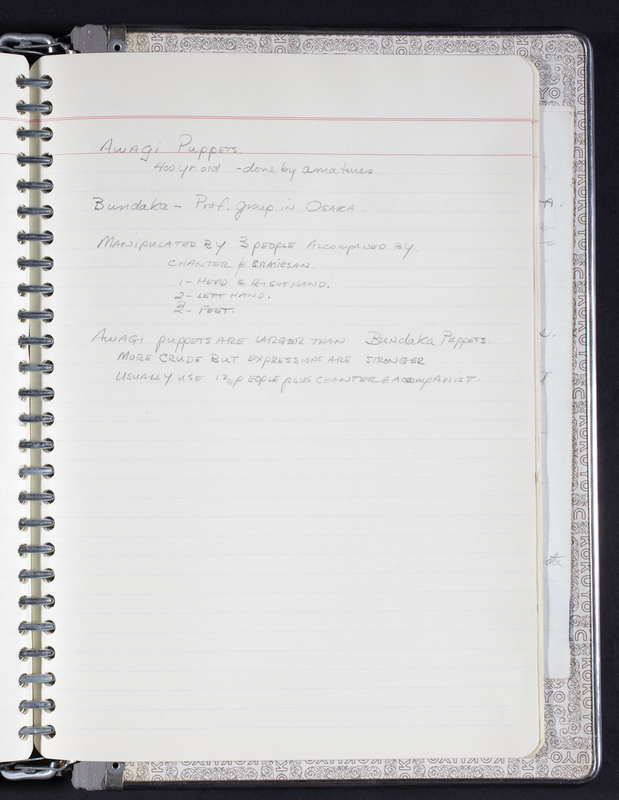 AWAGI PUPPETS.
400 yr. old - done by amatures
Bundaka - Prof. group in OSAKA.
MANIPULATED BY 3 PEOPLE ACCOMPANED BY.
CHANTER & SAMICSAN.
1- HEAD & RIGHT HAND.
2- LEFT HAND.
2- FEET.
AWAGI PUPPETS ARE LARGER THAN Bundaka Puppets.
MORE CRUDE BUT EXPRESSIONS ARE STRONGER
USUALLY USE 12 PEOPLE plus CHANTER & ACCOMPANIST.
KOKUYO